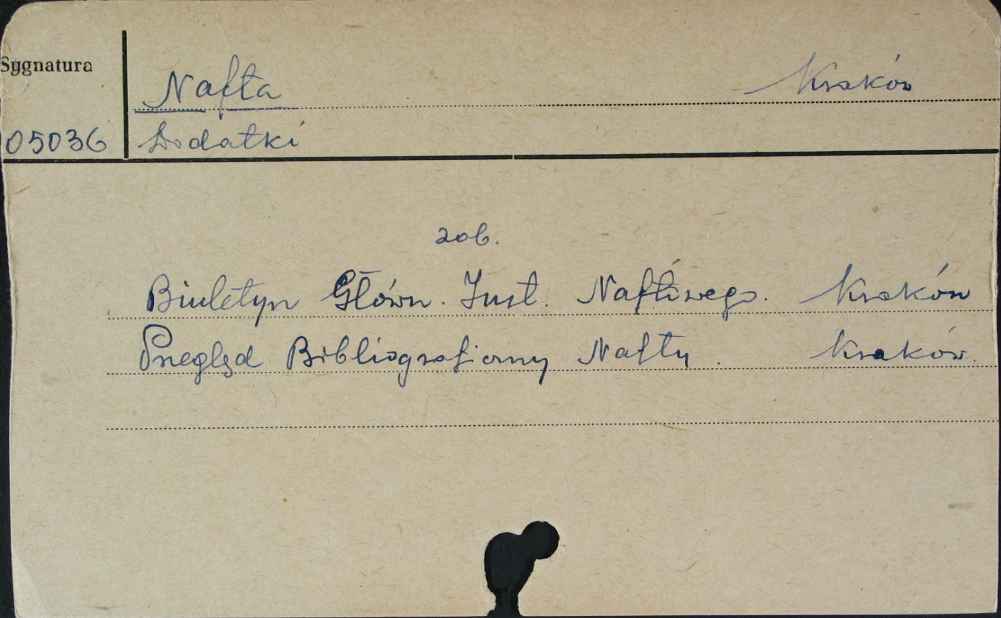 Sygnatura
Nafta Kraków
05036 Dodatki
zob.
Biuletyn Główn. Inst. Naftowego. Kraków
Przegląd Bibliograficzny Nafty. Kraków.